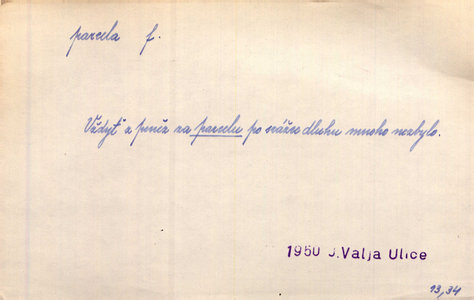 parcela f.
Vždyť z peněz za parcelu po srážce dluhu mnoho nezbylo.
1950 J.Valja Ulice
13,34